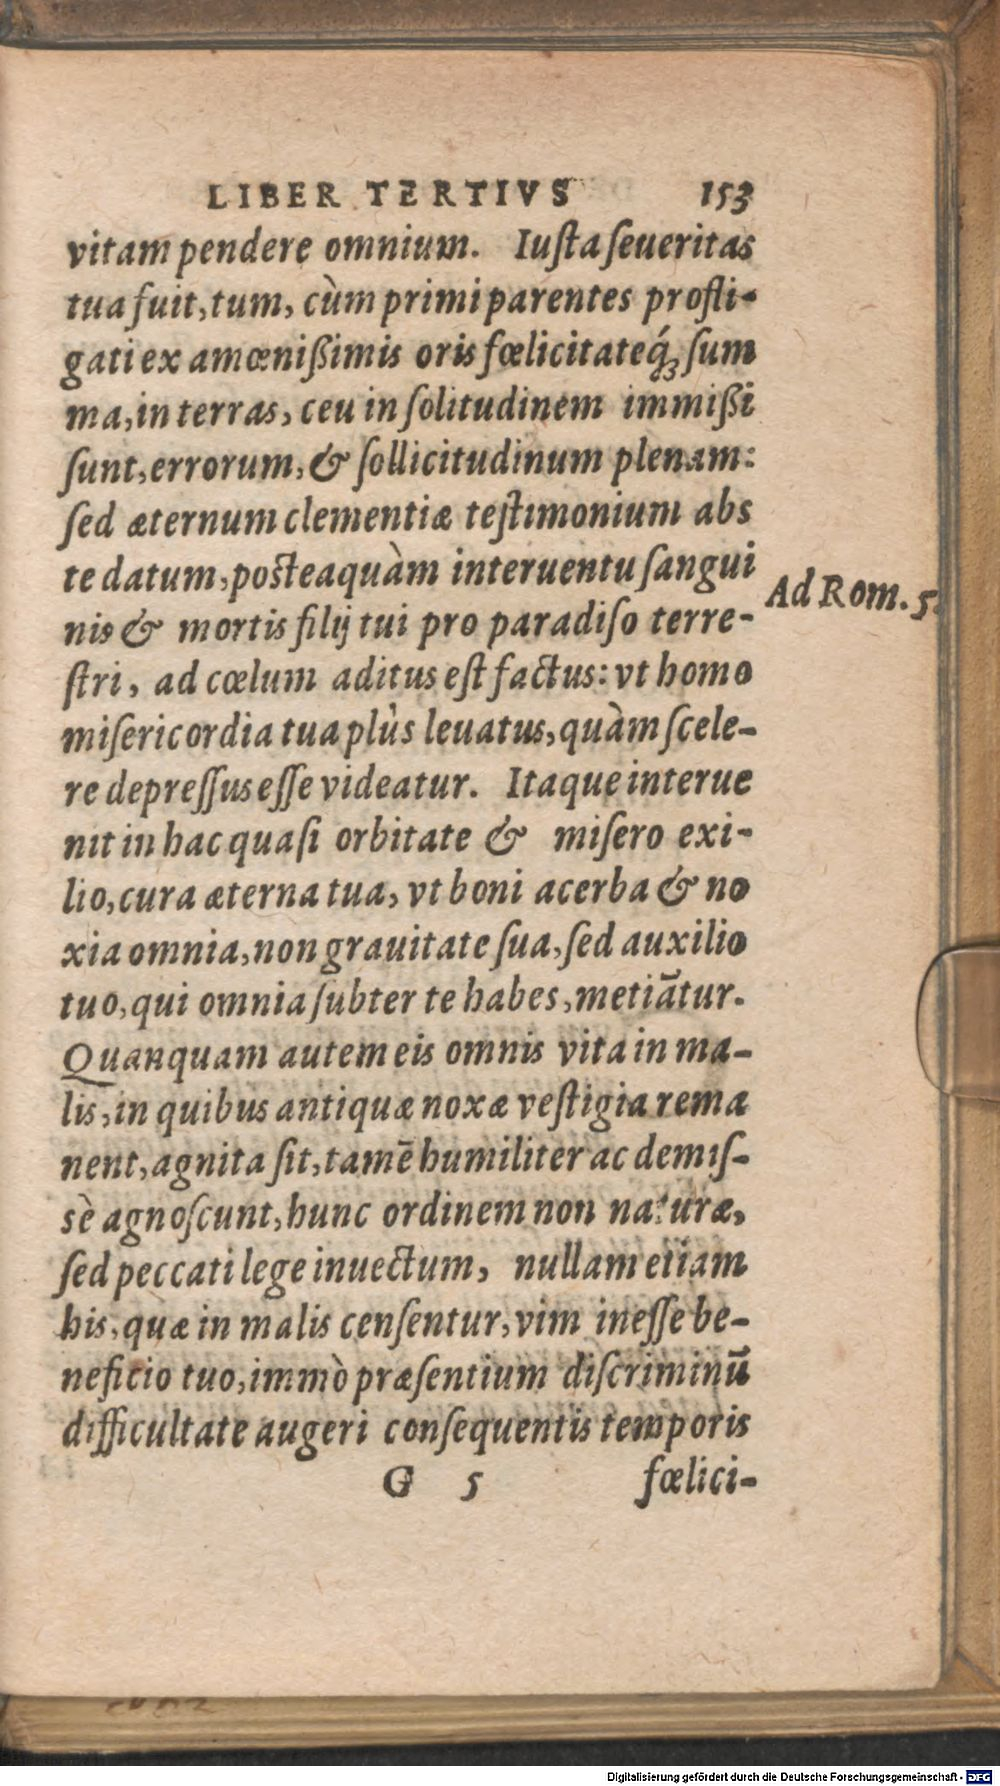 LIBER TERTIVS 153
vitam pendere omnium. Iuſta ſeueritas
tua fuit, tum, cùm primi parentes profli-
gati ex amœnißimis oris fœlicitateq́ꝫ ſum
ma, in terras, ceu in ſolitudinem immißi
ſunt, errorum, & ſollicitudinum plenam:
ſed æternum clementiæ teſtimonium abs
te datum, poſteaquàm interuentu ſangui
nis & mortis filij tui pro paradiſo terre-
ſtri, ad cœlum aditus eſt factus: vt homo
miſericordia tua plùs leuatus, quàm ſcele-
re depreſſus eſſe videatur. Itaque interue
nit in hac quaſi orbitate & miſero exi-
lio, cura æterna tua, vt boni acerba & no
xia omnia, non grauitate ſua, ſed auxilio
tuo, qui omnia ſubter te habes, metiãtur.
Quanquam autem eis omnis vita in ma-
lis, in quibus antiquæ noxæ veſtigia rema
nent, agnita ſit, tamẽ humiliter ac demiſ-
sè agnoſcunt, hunc ordinem non naturæ,
ſed peccati lege inuectum, nullam etiam
his, quæ in malis cenſentur, vim ineſſe be-
neficio tuo, immò præſentium diſcriminũ
difficultate augeri conſequentis temporis
G 5 fœlici-
Ad Rom. 5.
Digitalisierung gefördert durch die Deutsche Forschungsgemeinschaft - DFG